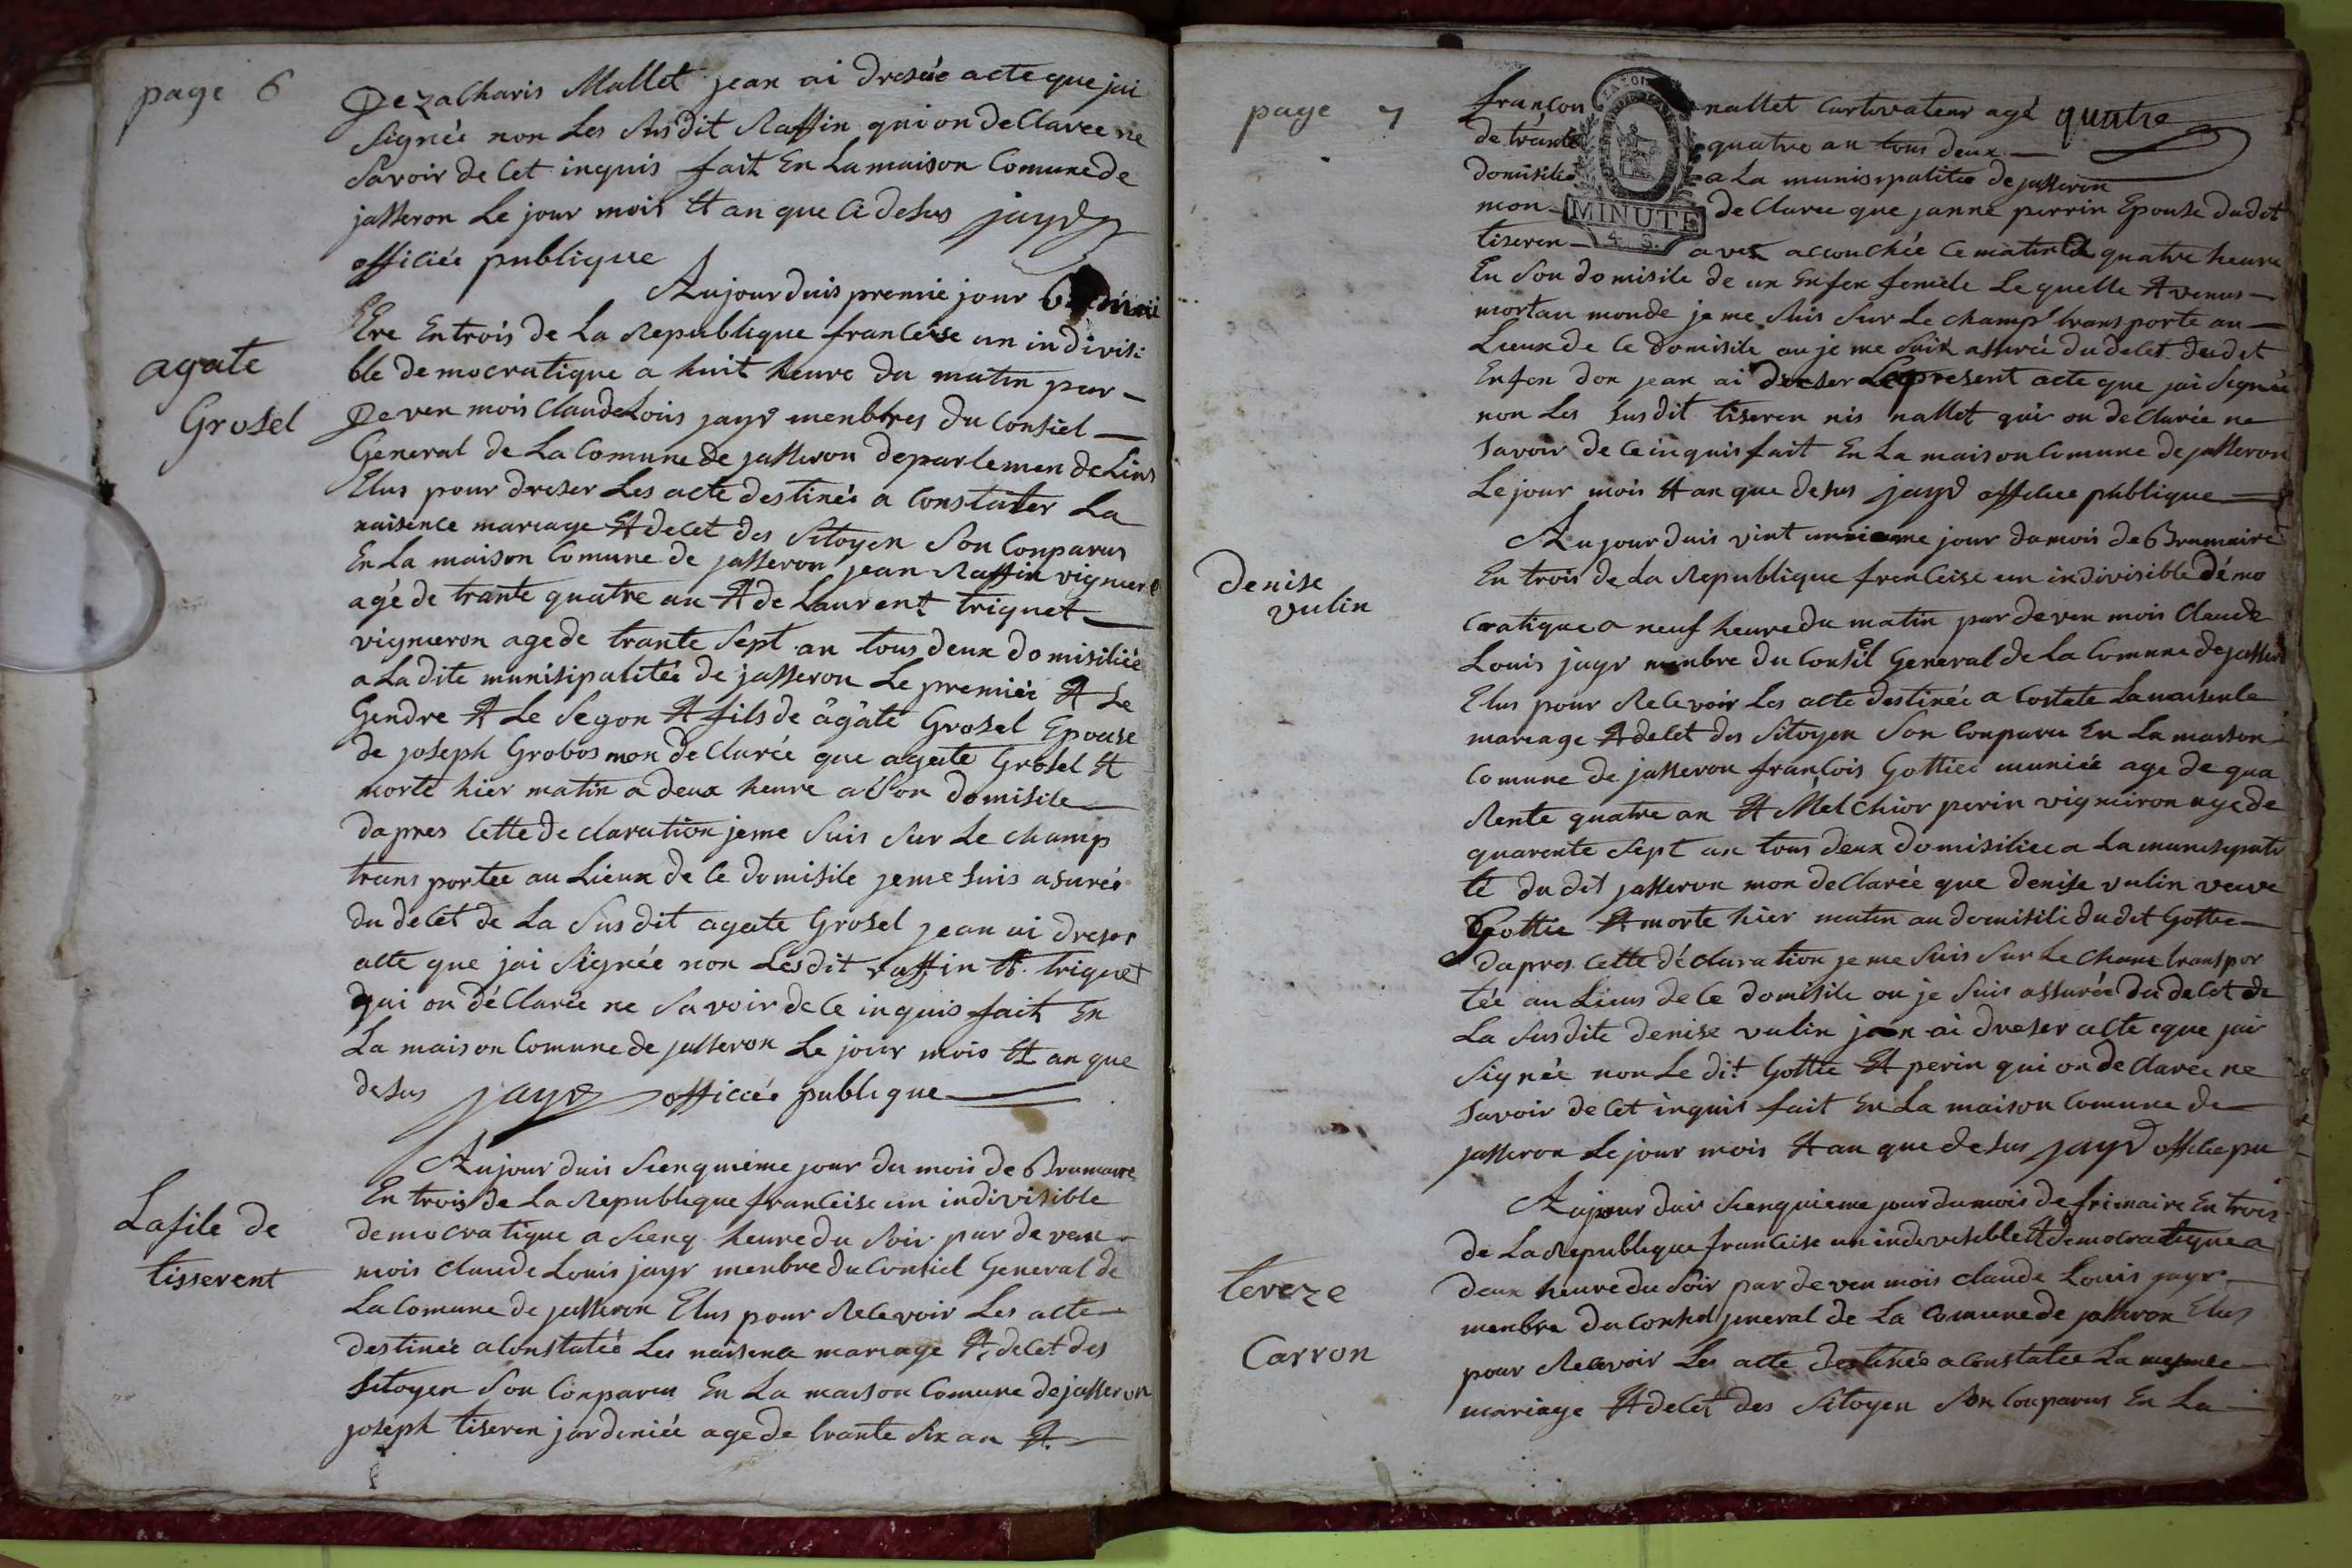 page 6
De zacharis Mallet jean ai dresée acte que jai
signée non Les susdit Raffin qui on declaree ne
savoir de cet inquis fait En La maison Comune de
jasseron Le jour mois Et an que ci desus jayr
officiée publique
Aujourduis premie jour
agate
Grosel
Ere En trois de La Republique franceise un indivisi
ble democratique a huit heure du matin par
De ven mois Claude Louis jayr menbres du Consiel
General de La Comune de jasseron departemen de Lins
Elus pour dreser Les acte destinée a Constater La
naisence mariage Et decet des Sitoyen Son Conparus
En La maison Comune de jasseron jean Raffin vignieró
agé de trante quatre an Et de Laurent triquet
vignieron age de trante sept an tous deux domisiliée
a La dite munisipalitée de jasseron Le premiée Et Le
Gendre Et Le Segon Et fils de agate Grosel Epouse
de joseph Grobos mon declarée que agate Grosel Et
morte hier matin a deux heure a son domisile
dapres Cette declaration je me suis sur Le champ
trans portee au Lieux de Ce domisile je me suis asurée
du decet de La Susdit agate Grosel jean ai dreser
acte que jai Signée non Lesdit raffin Et triquet
qui on déClarée ne savoir de Ce inquis fait En
La maison Comune de jasseron Le jour mois Et an que
desus jayr officiée publique
Lafile de
tisserent
Aujourduis sienquieme jour du mois de Brumaire
En trois de La Republique franceise un indivisible
democratique a sienq heure du soir par de ven
mois claude Louis jayr menbre du Consiel General de
La Comune de jasseron Elus pour Recevoir Les acte
destinée a Constatée Les naisence mariage Et decet des
Sitoyen Son Conparus En La maison Comune de jasseron
joseph tiseren jardeniée age de trante six an Et
page 7
françois nallet Curtivateur agé quatre
de trante quatre an tous deux
domisilié a La munisipalitée de jasseron
MINUTE
4. S.
mon declaree que janne perrin Epouse dudit
tiseren avet acouchée Ce matin a quatre heure
En Son domisile de un Enfen femele Le quelle Et venus
mort au monde je me suis sur Le champ transporte au
Lieux de Ce domisile ou je me suis assurée du decet dudit
Enfen don jean ai dreser Le present acte que jai Signée
non Les susdit tiseren nis nallet qui on declarée ne
savoir de Ce inquis fait En La maison Comune de jasseron
Le jour mois Et an que desus jayr officiee publique
denise
vulin
Aujourduis vint unieme jour du mois de Brumaire
En trois de La Republique frenceise un indivisible démo
cratique a neuf heure du matin par de ven mois Claude
Louis jayr menbre du Consiel General de La Comune de jasseron
Elus pour Recevoir Les acte destinée a Costate La naisence
mariage Et decet des Sitoyen Son Conparu En La maison
Comune de jasseron françois Gottiee muniée age de qua
Rente quatre an Et Melchior perin vigneiron age de
quarente sept an tous deux domisiliee a La munisipati
té dudit jasseron mon declarée que denise vulin veuve
Gottie Et morte hier matin au domisili dudit Gottie
dapres Cette déclaration je me suis sur Le chanc transpor
tée au Lieus de Ce domisile ou je suis assurée du decet de
La Susdite denise vulin jean ai dreser acte que jai
Signée non Le dit Gottie Et perin qui on declarée ne
savoir de Cet inquis fait En La maison Comune de
jasseron Le jour mois Et an que desus jayr officie pu
tereze
Carron
Aujourduis sienquieme jour du mois de frimaire En trois
de La Republique franceise un indevisible Et democratique a
deux heure du soir par de ven mois claude Louis jayr
menbre du Consiel jeneral de La Comune de jasseron Elus
pour Recevoir Les acte destinée a Constatee La naisence
mariage Et decet des Sitoyen Son Conparus En La